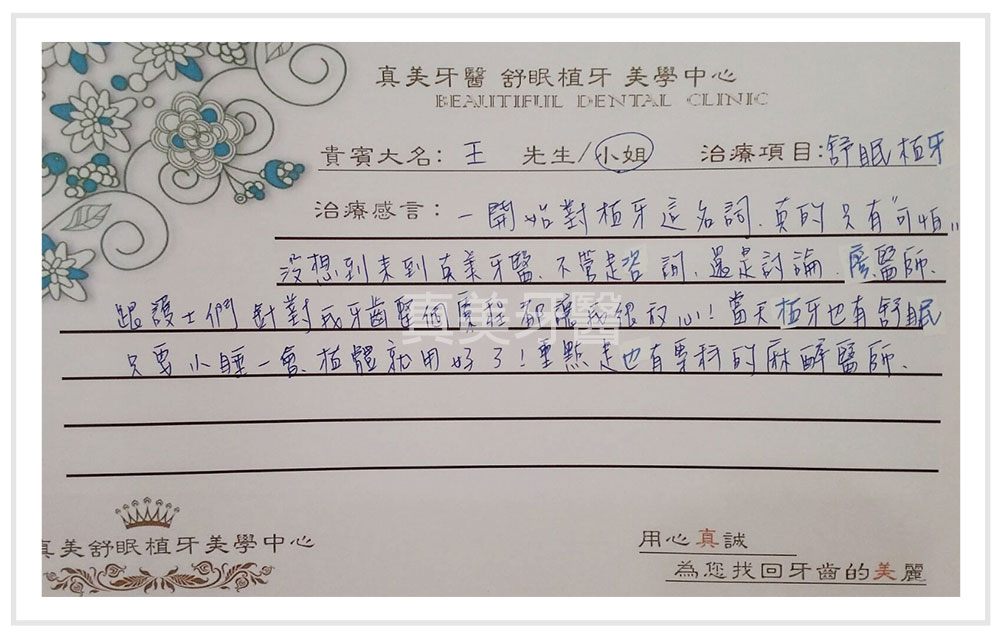 真美牙醫 舒眠植牙 美學中心
BEAUTIFUL DENTAL CLINIC
貴賓大名：王 先生/小姐 治療項目:舒眠植牙
治療感言：一開始對植牙這名詞.真的只有"可怕"
沒想到來到真美牙醫.不管是咨詢.還是討論.廖醫師.
跟護士們針對我牙齒整個療程都讓我很放心!當天植牙也有舒眠
只要小睡一會.植體就用好了!重點是也有專科的麻醉醫師.
真美牙醫
真美舒眠植牙美學中心
用心真誠
為您找回牙齒的美麗